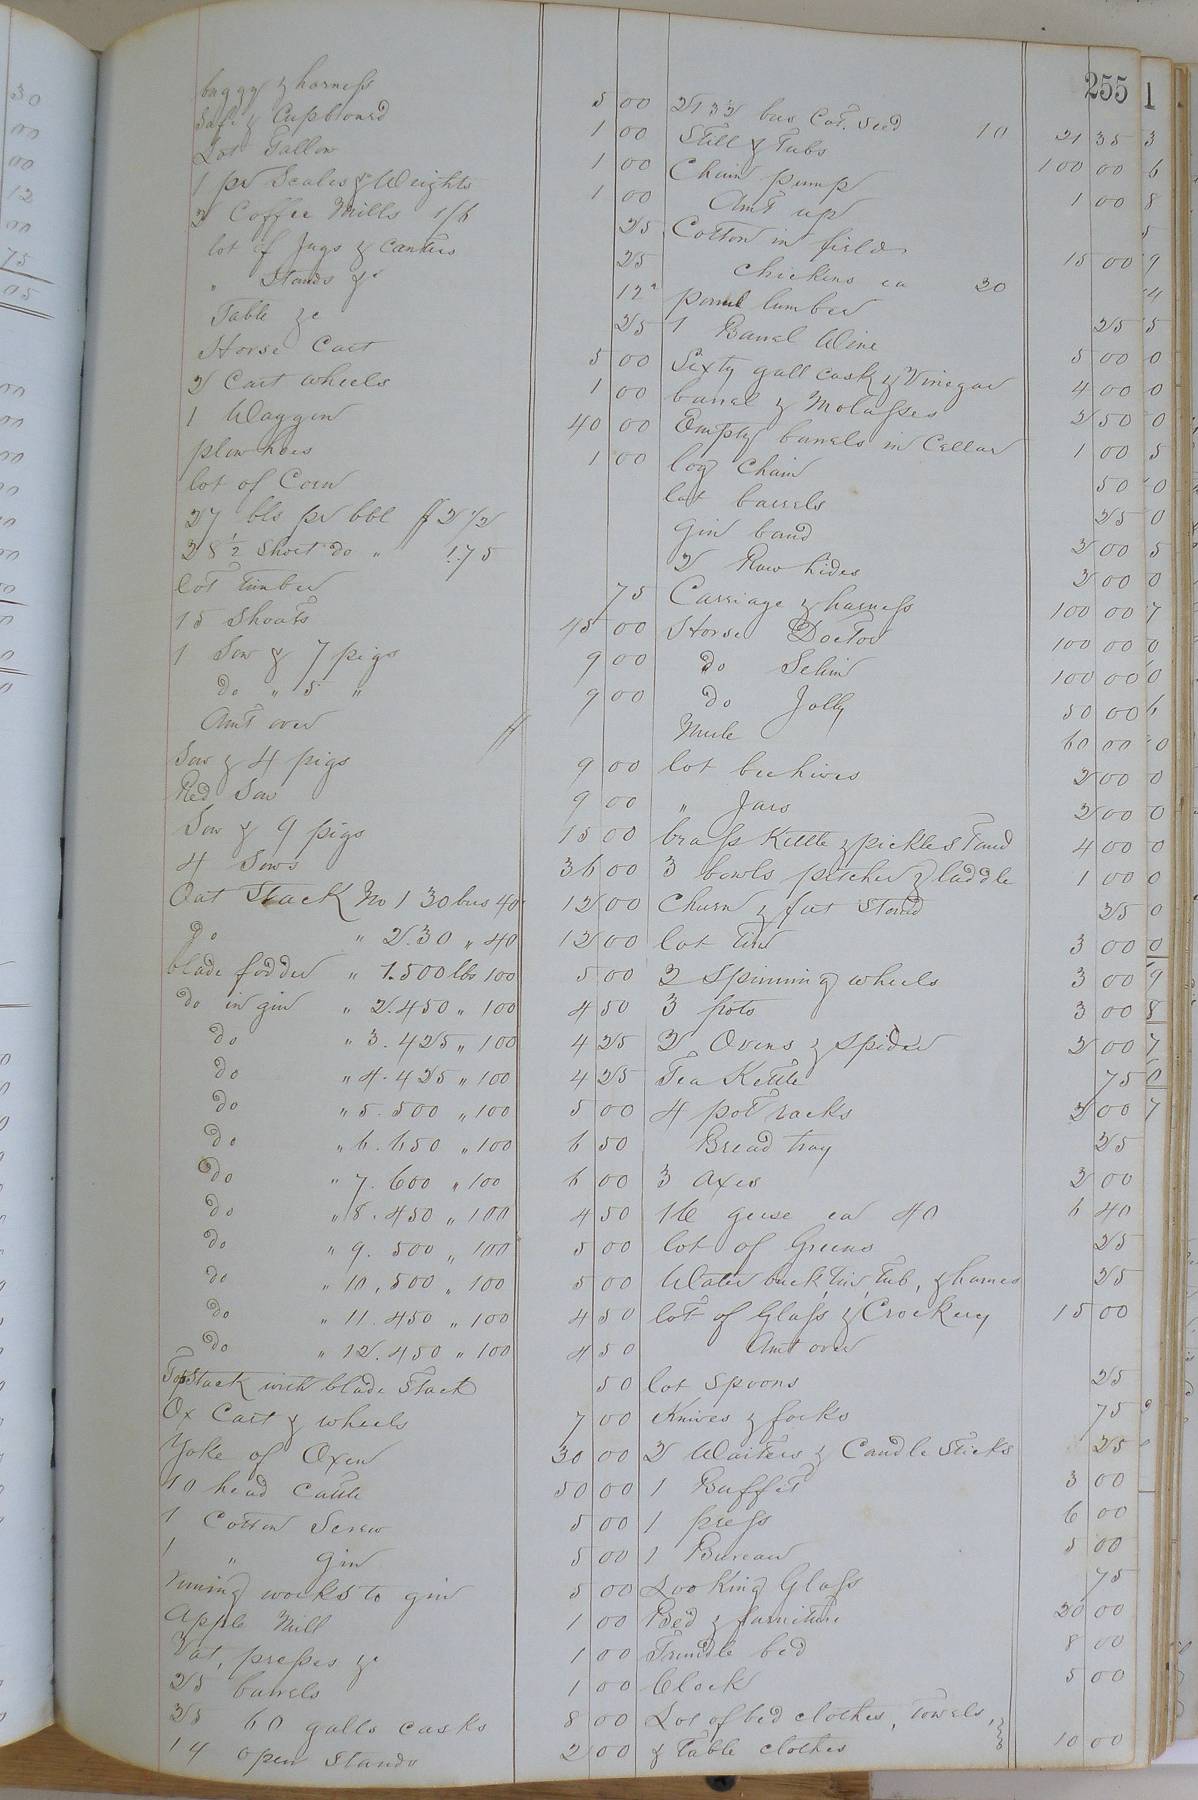 255
buggy & harness 5 00
Safe & Cupboard 1 00
Lot Tallow 1 00
1 pr Scales & Weights 1 00
2 Coffee Mills 1/6 25
lot of Jugs & Canters 25
" Stands &c 12
Table &c 25
Horse Cart 5 00
2 Cart wheels 1 00
1 Waggon 40 00
plow hoes 1 00
lot of Corn
27 bls pr bbl $2 1/2
28 1/2 Short do " 1.75
lot Timber 75
15 Shoats 45 00
1 Sow & 7 pigs 9 00
do " 5 " 9 00
Amt over $
Sow & 4 pigs 9 00
Red Sow 9 00
Sow & 9 pigs 15 00
4 Sows 36 00
Oat Stack No 1 30 bus 40 12 00
do " 2. 30 " 40 12 00
blade fodder " 1. 500 lbs 100 5 00
do in gin " 2. 450 " 100 4 50
do " 3. 425 " 100 4 25
do " 4. 425 " 100 4 25
do " 5. 500 " 100 5 00
do " 6. 650 " 100 6 50
do " 7. 600 " 100 6 00
do " 8. 450 " 100 4 50
do " 9. 500 " 100 5 00
do " 10. 500 " 100 5 00
do " 11. 450 " 100 4 50
do " 12. 450 " 100 4 50
Top Stack with blade Stack 50
Ox Cart & wheels 7 00
Yoke of Oxen 30 00
10 head Cattle 50 00
1 Cotton Screw 5 00
1 " Gin 5 00
runing works to gin 5 00
Apple Mill 1 00
Vat, presses &c 1 00
25 barrels 1 00
25 60 galls casks 8 00
14 open Stands 2 00
bus Cot. Seed 10 21 35
Still & Tubs 100 00
Chain pump 1 00
Amt up
Cotton in field 15 00
Chickens ea 20
lumber 25
1 Barrel Wine 5 00
Sixty gall cask & Vinegar 4 00
barrel & Molasses 2 50
Empty barrels in Cellar 1 00
log Chain 50
lot barrels 25
Gin band 2 00
2 Raw hides 2 00
Carriage & harness 100 00
Horse Doctor 100 00
do Selim 100 00
do Jolly 50 00
Mule 60 00
lot beehives 2 00
" Jars 2 00
brass Kettle & pickle Stand 4 00
3 bowls pitcher & laddle 1 00
Churn & fat Stand 25
lot tin 3 00
2 Spinning wheels 3 00
3 pots 3 00
2 Ovens & Spider 2 00
Tea Kettle 75
4 pot racks 2 00
Bread tray 25
3 axes 2 00
16 geese ea 40 6 40
lot of Greens 25
Water buck, tin, Tub, & hames 25
lot of Glass & Crockery 15 00
Amt over
lot Spoons 25
Knives & forks 75
2 Waiters & Candle Sticks 25
1 Buffet 3 00
1 press 6 00
1 Bureau 5 00
Looking Glass 75
Bed & furniture 20 00
Trundle bed 8 00
Clock 5 00
Lot of bed clothes, Towels,
& Table clothes 10 00